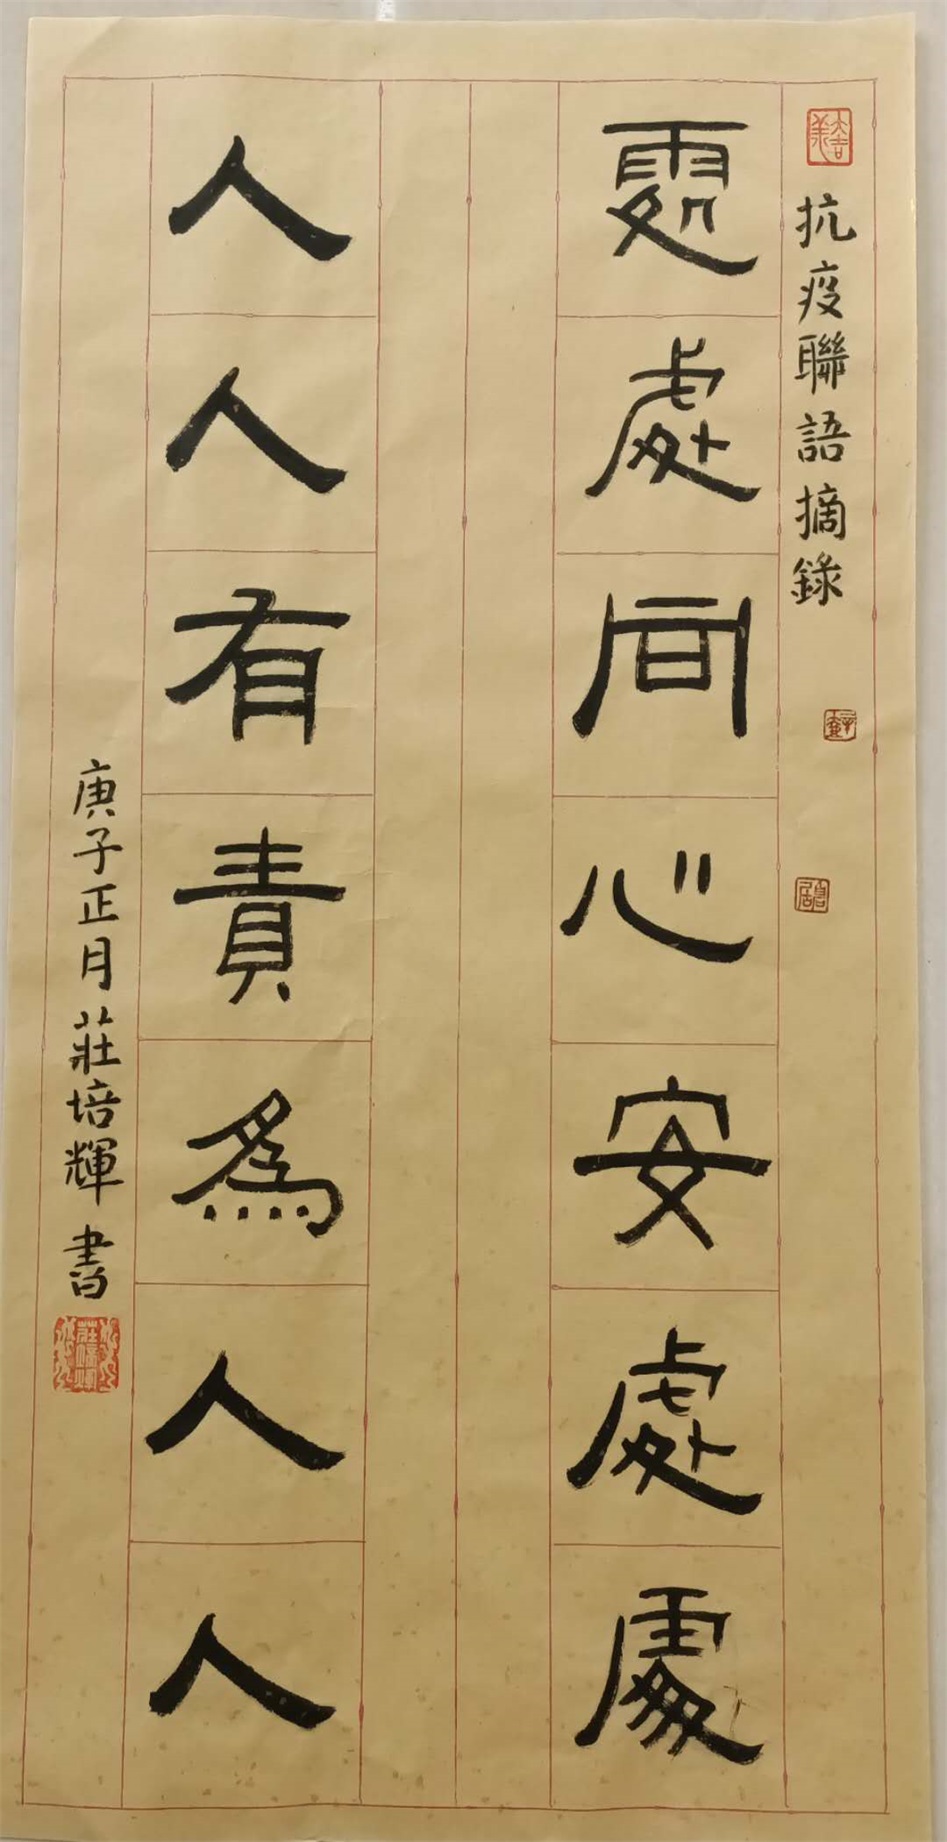 抗疫聯語摘錄
處處同心安處處
人人有責為人人
庚子正月莊培輝書